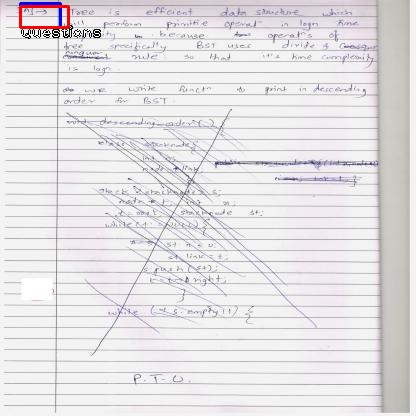 Q1 → Tree is efficient data structure which
will perform primitive operatⁿ in logn time
complexity because operatⁿs of
tree specifically BST uses divide &
conquer rule so that it's time complexity
is logn.
write functⁿ to print in descending
order for BST.
Questions
void descending_order()
class stacknode {
int n;
node * link;
stack < stacknode> s;
node * t; int n;
t = root stacknode st;
while(t != NULL) {
st n = 0;
st link = t;
s.push (st);
t = t → right;
}
while (! s.empty()) {
P.T.O.